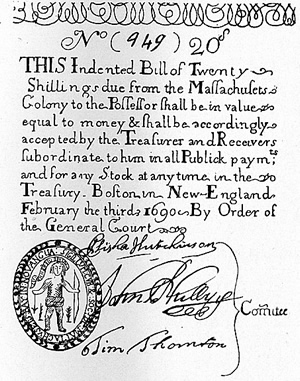 No (949) 20s
THIS Indented Bill of Twenty
Shillings due from the Massachusets
Colony to the Possessor shall be in value
equal to money & shall be accordingly
accepted by the Treasurer and Receivers
subordinate to him in all Publick paymts
and for any Stock at any time in the
Treasury. Boston in New-England
February the third 1690. By Order of
the General Court
Elisha Hutchinson
John
Tim Thornton
Comittee